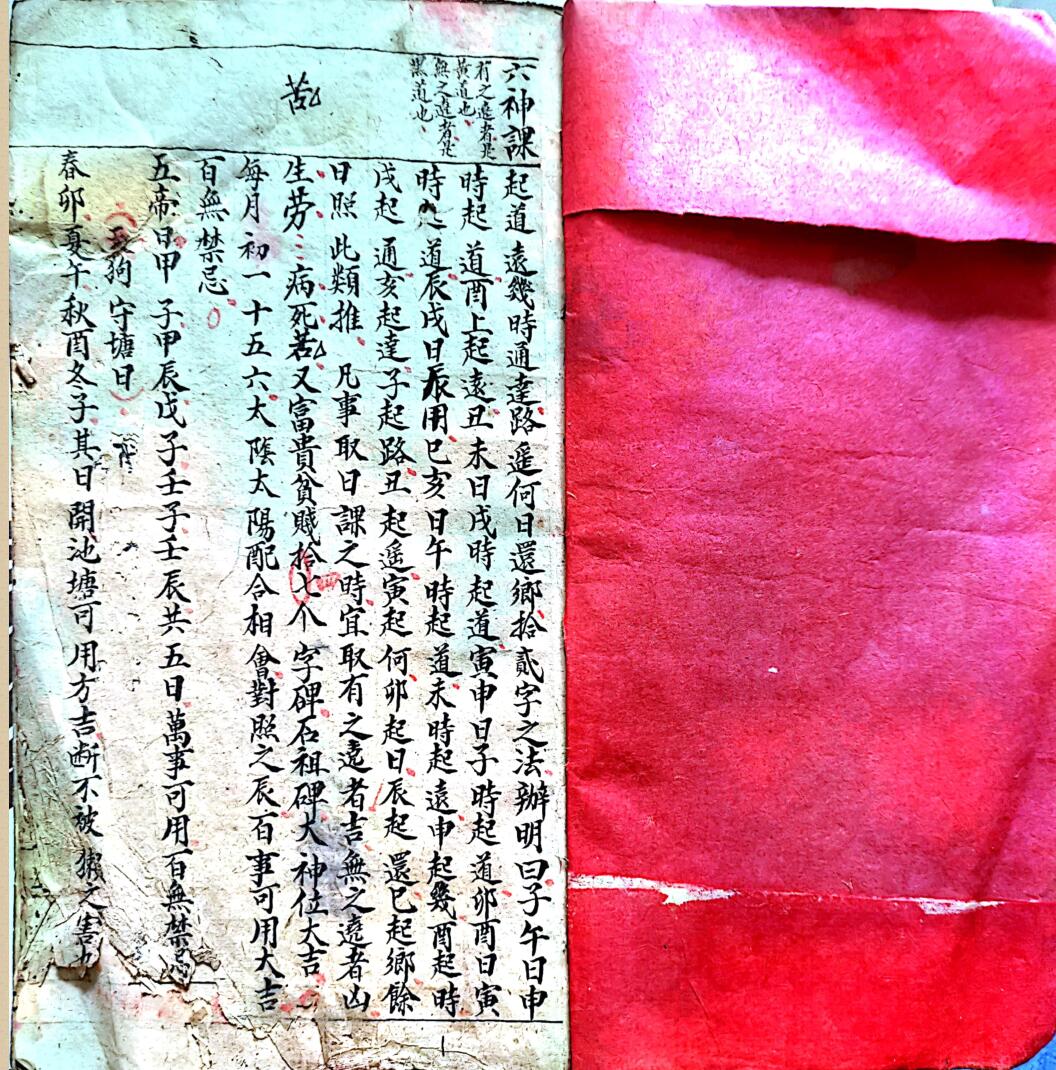 六神課
有之遶者是
黃道也
無之遶者是
黑道也
苦
起道遠幾時通達路遥何日還鄉拾貳字之法辦明曰子午日申
時起道酉上起遠丑未日戌時起道寅申日子時起道卯酉日寅
時起道辰戌日辰用巳亥日午時起道未時起遠申起幾酉起時
戌起通亥起達子起路丑起遥寅起何卯起日辰起還巳起鄉餘
日照此類推凡事取日課之時宜取有之遶者吉無之遶者凶
生劳病死苦又富貴貧賤拾七个字碑石祖碑大神位大吉
每月初一十五六太陰太陽配合相會對照之辰百事可用大吉
百無禁忌
五帝日甲子甲辰戊子壬子壬辰共五日萬事可用百無禁忌
狗守塘日
春卯夏午秋酉冬子其日開池塘可用方吉断不被獺之害